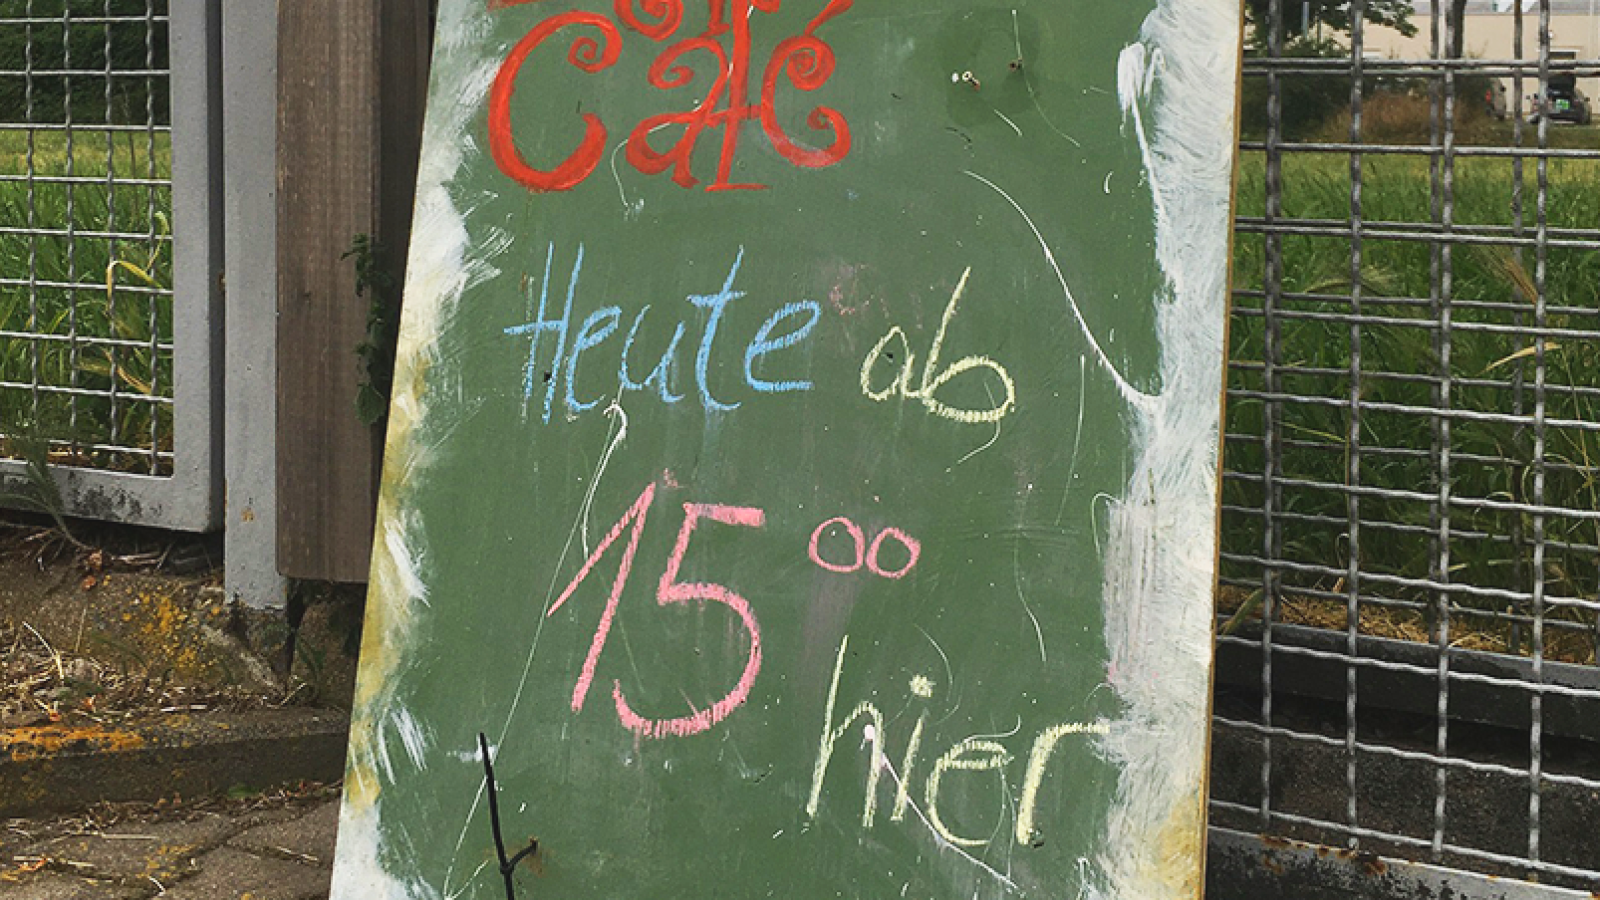 Café
Heute ab
15 00
hier